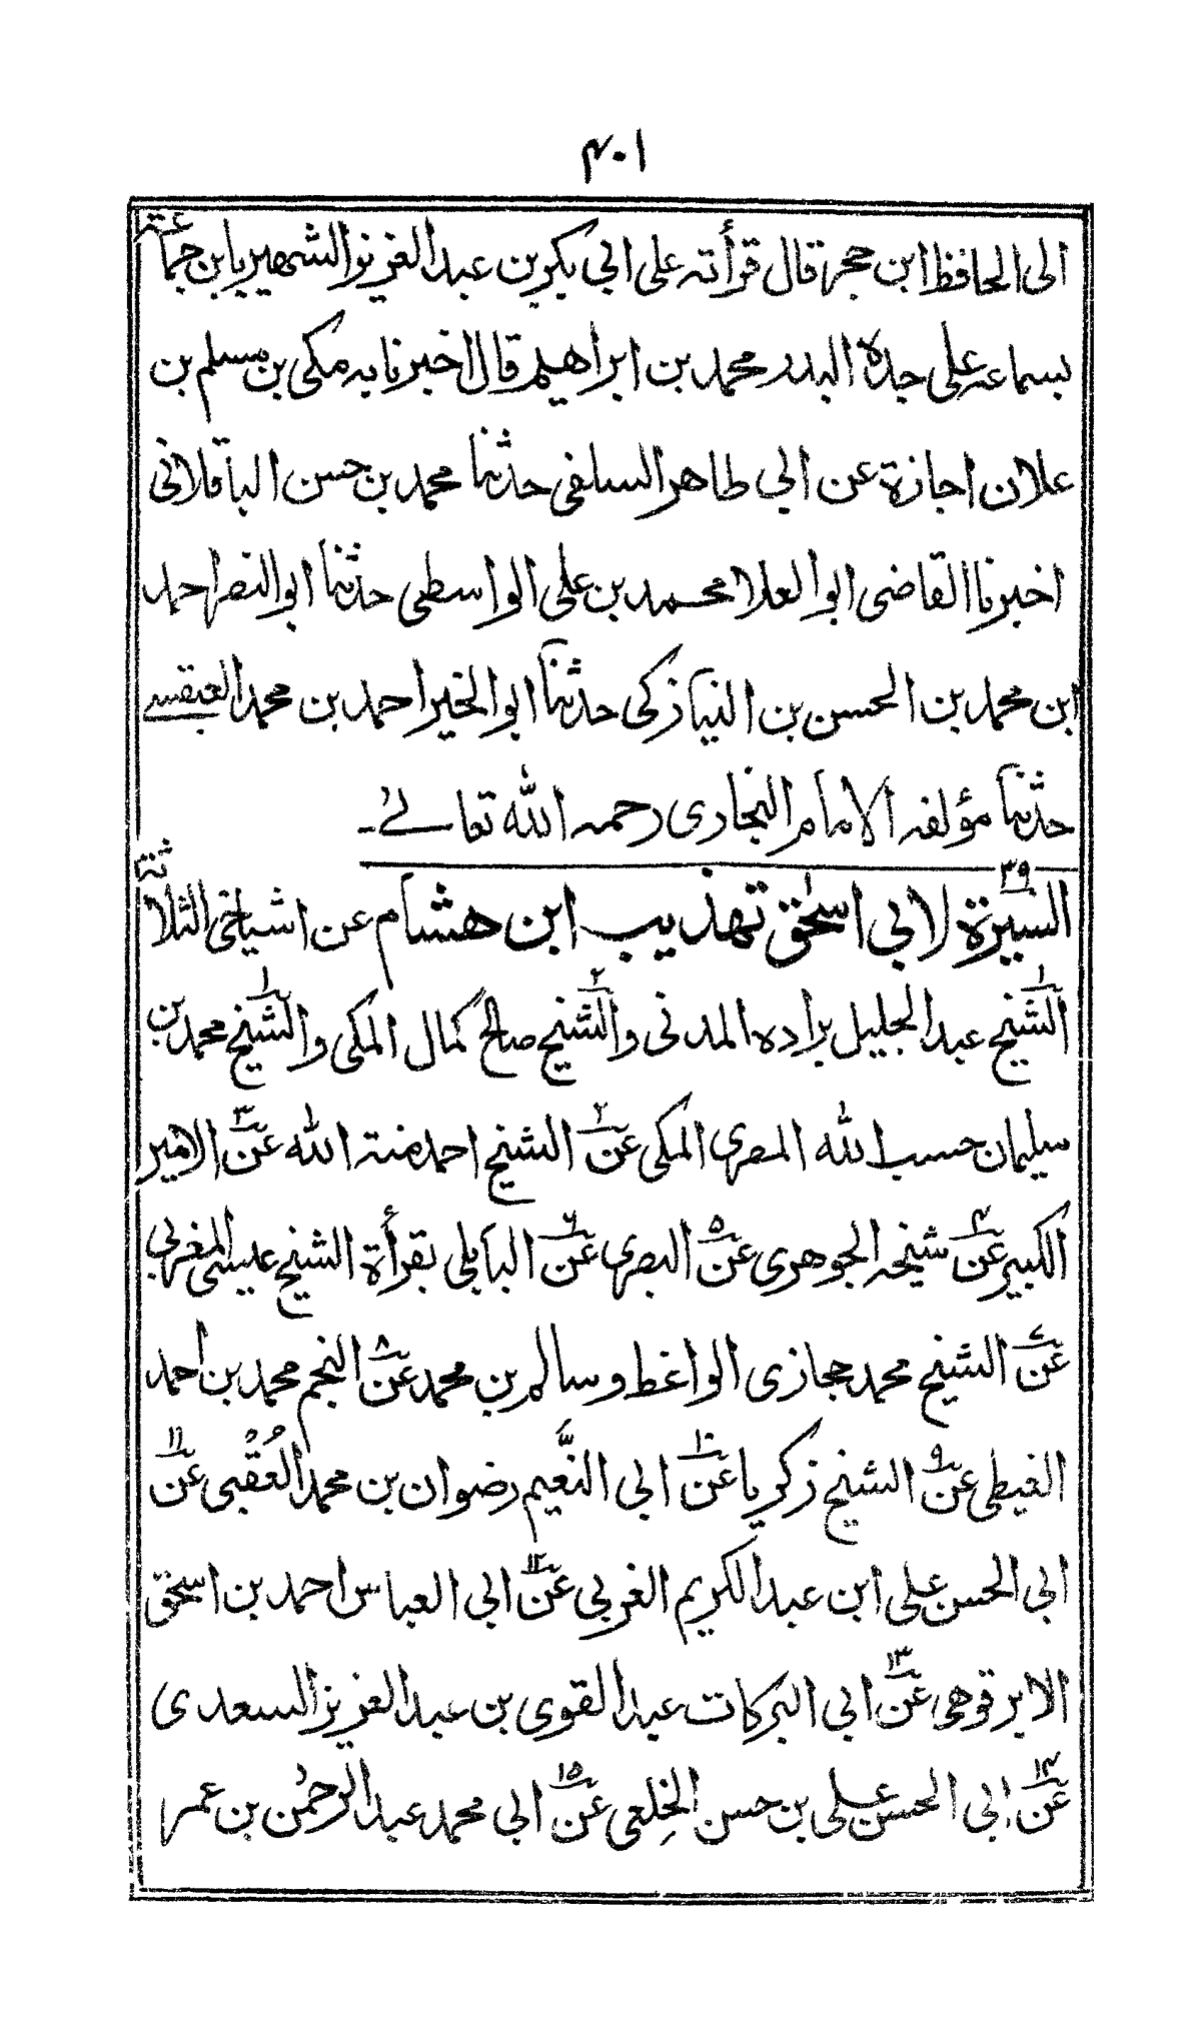 ۴۰۱
الی الحافظ ابن حجر قال قرأته علی ابی بکر بن عبد العزیز الشهیر بابن جماعة
بسماعه علی جده البدر محمد بن ابراهیم قال اخبرنا به مکی بن مسلم بن
علان اجازة عن ابی طاهر السلفی حدثنا محمد بن حسن الباقلانی
اخبرنا القاضی ابو العلا محمد بن علی الواسطی حدثنا ابو النصر احمد
ابن محمد بن الحسن بن النیازکی حدثنا ابو الخیر احمد بن محمد العبقسے
حدثنا مؤلفه الامام البخاری رحمه الله تعالےٰ۔
۳۹ السیرة لابی اسحٰق تهذیب ابن هشام عن اشیاخی الثلاثة
۱ الشیخ عبد الجلیل براده المدنی و۲الشیخ صالح کمال المکی و۱الشیخ محمد بن
سلیمان حسب الله المصری المکی عن۲ الشیخ احمد منة الله عن۳ الامیر
الکبیر عن۴ شیخه الجوهری عن۵ البصری عن۶ البابلی بقرأة الشیخ عیسی المغربی
عن۷ الشیخ محمد حجازی الواعظ وسالم بن محمد عن۸ النجم محمد بن احمد
الغیطی عن۹ الشیخ زکریا عن۱۰ ابی النَّعیم رضوان بن محمد العُقْبی عن۱۱
ابی الحسن علی ابن عبد الکریم الغربی عن۱۲ ابی العباس احمد بن اسحٰق
الابرقوهی عن۱۳ ابی البرکات عبد القوی بن عبد العزیز السعدی
عن۱۴ ابی الحسن علی بن حسن الخِلعی عن۱۵ ابی محمد عبد الرحمٰن بن عمر